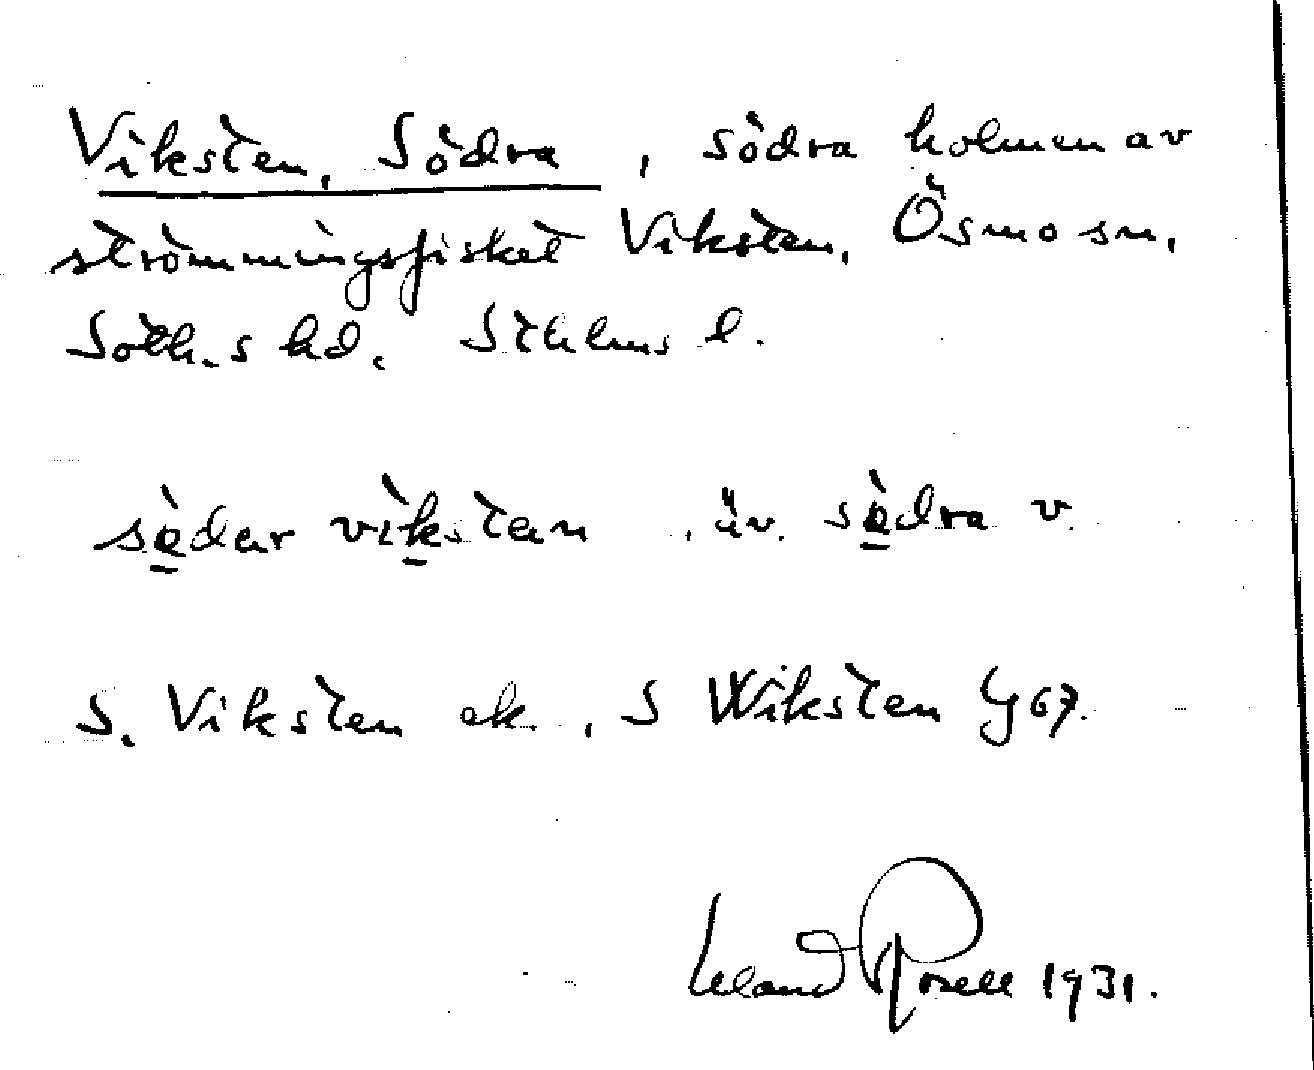 Viksten, Södra, södra holmen av
strömmingsfisket Viksten, Ösmo sn,
Soth.s hd, Sthlms l.
sø̀dar vìkstan, äv. sø̀dra v.
S. Viksten ek., S Wiksten 67.
Rosell 1931.